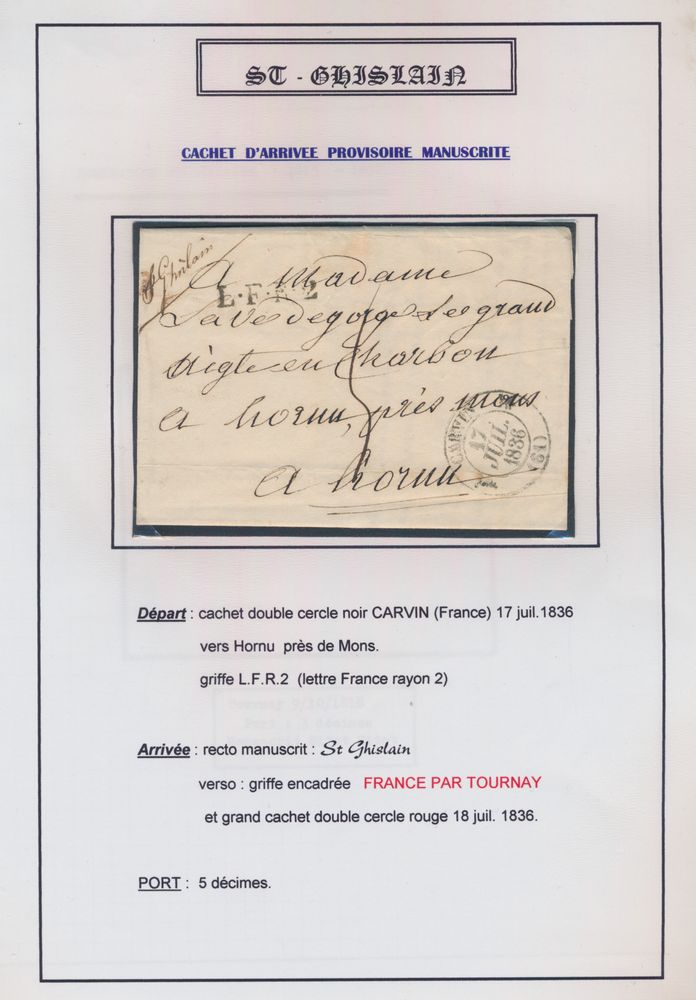 ST - GHISLAIN
CACHET D'ARRIVEE PROVISOIRE MANUSCRITE
St Ghislain
A Madame
L.F.R.2
Legrand
en Charbon
a hornu, près mons
a hornu
5
CARVIN
17
JUIL.
1836
(61)
Départ : cachet double cercle noir CARVIN (France) 17 juil.1836
vers Hornu près de Mons.
griffe L.F.R.2 (lettre France rayon 2)
Arrivée : recto manuscrit : St Ghislain
verso : griffe encadrée FRANCE PAR TOURNAY
et grand cachet double cercle rouge 18 juil. 1836.
PORT : 5 décimes.